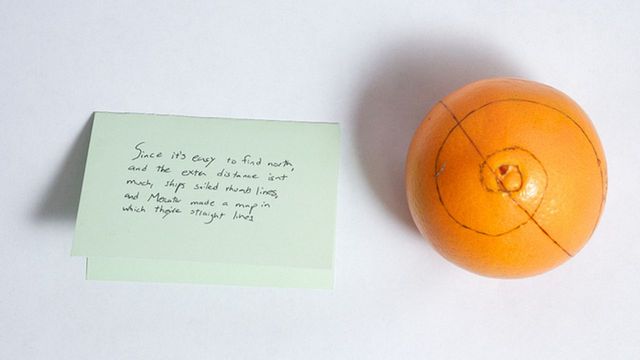 Since it's easy to find north,
and the extra distance isn't
much, ships sailed rhumb lines,
and Mercator made a map in
which they're straight lines